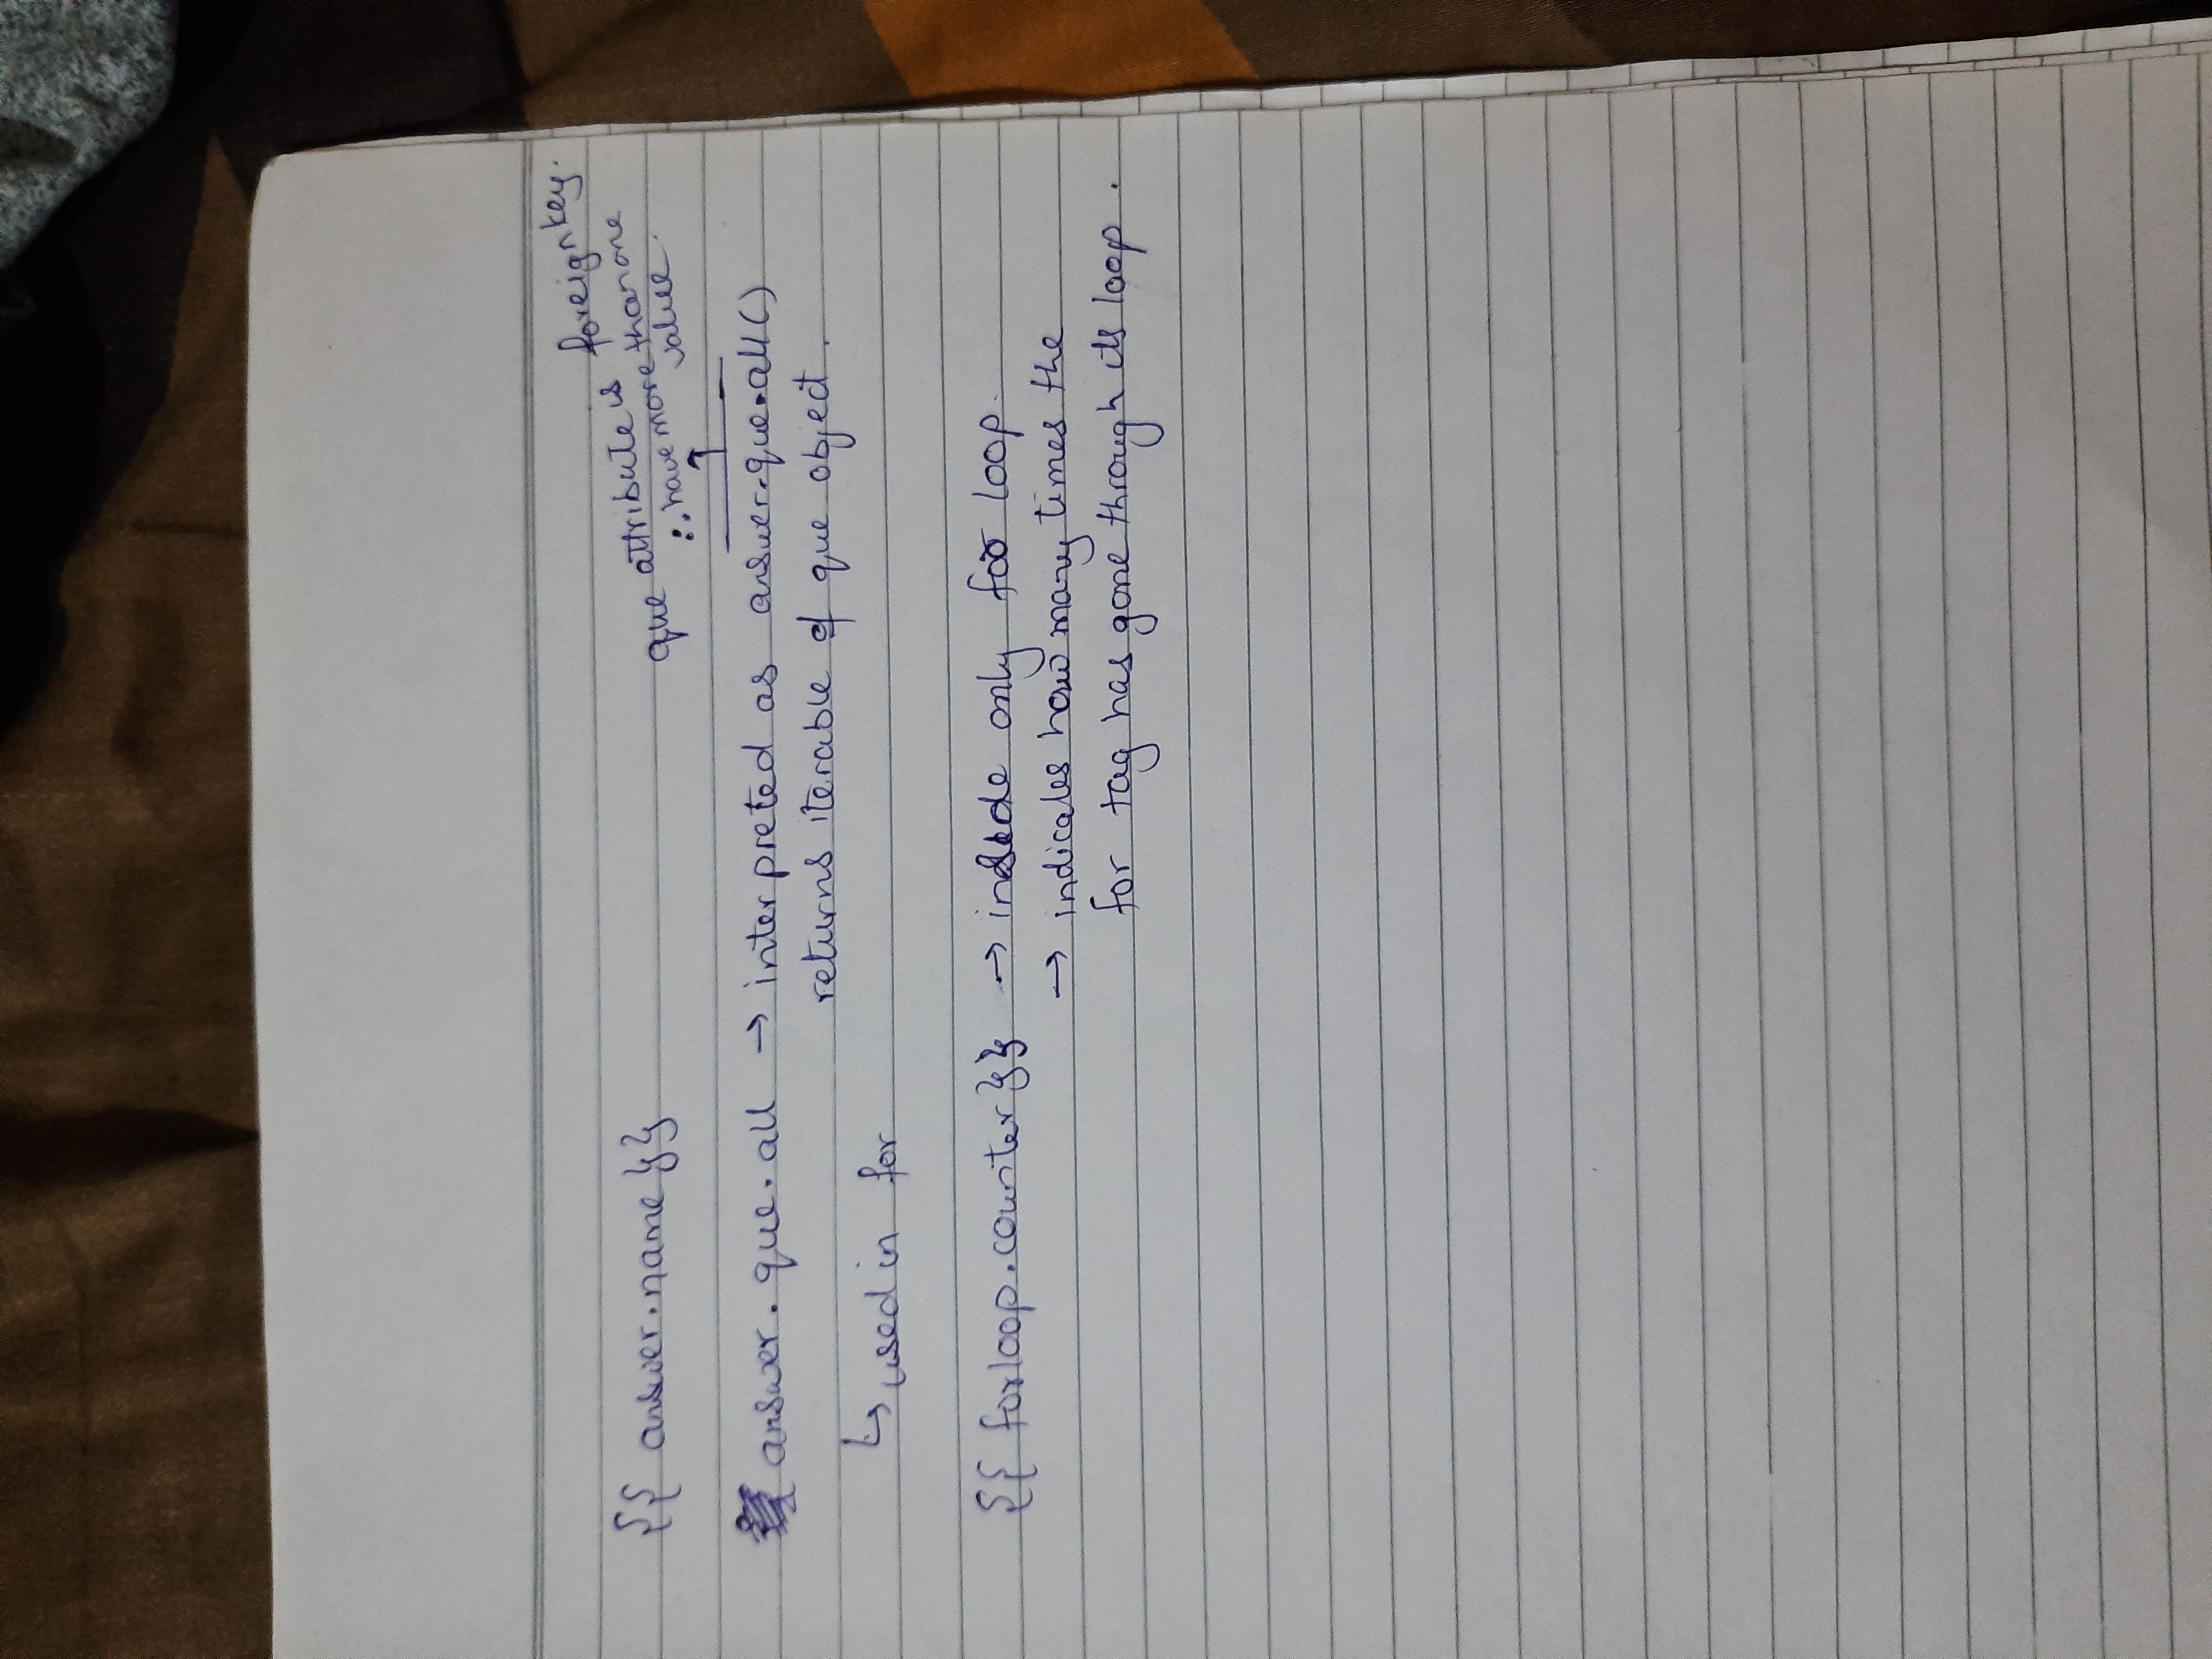 que attribute is foreignkey.
∴ have more than one
value.
{{ answer.name }}
answer.que.all → interpreted as answer.que.all()
returns iterable of que object.
↳ used in for
{{ forloop.counter }} → inside only for loop.
→ indicates how many times the
for tag has gone through its loop.